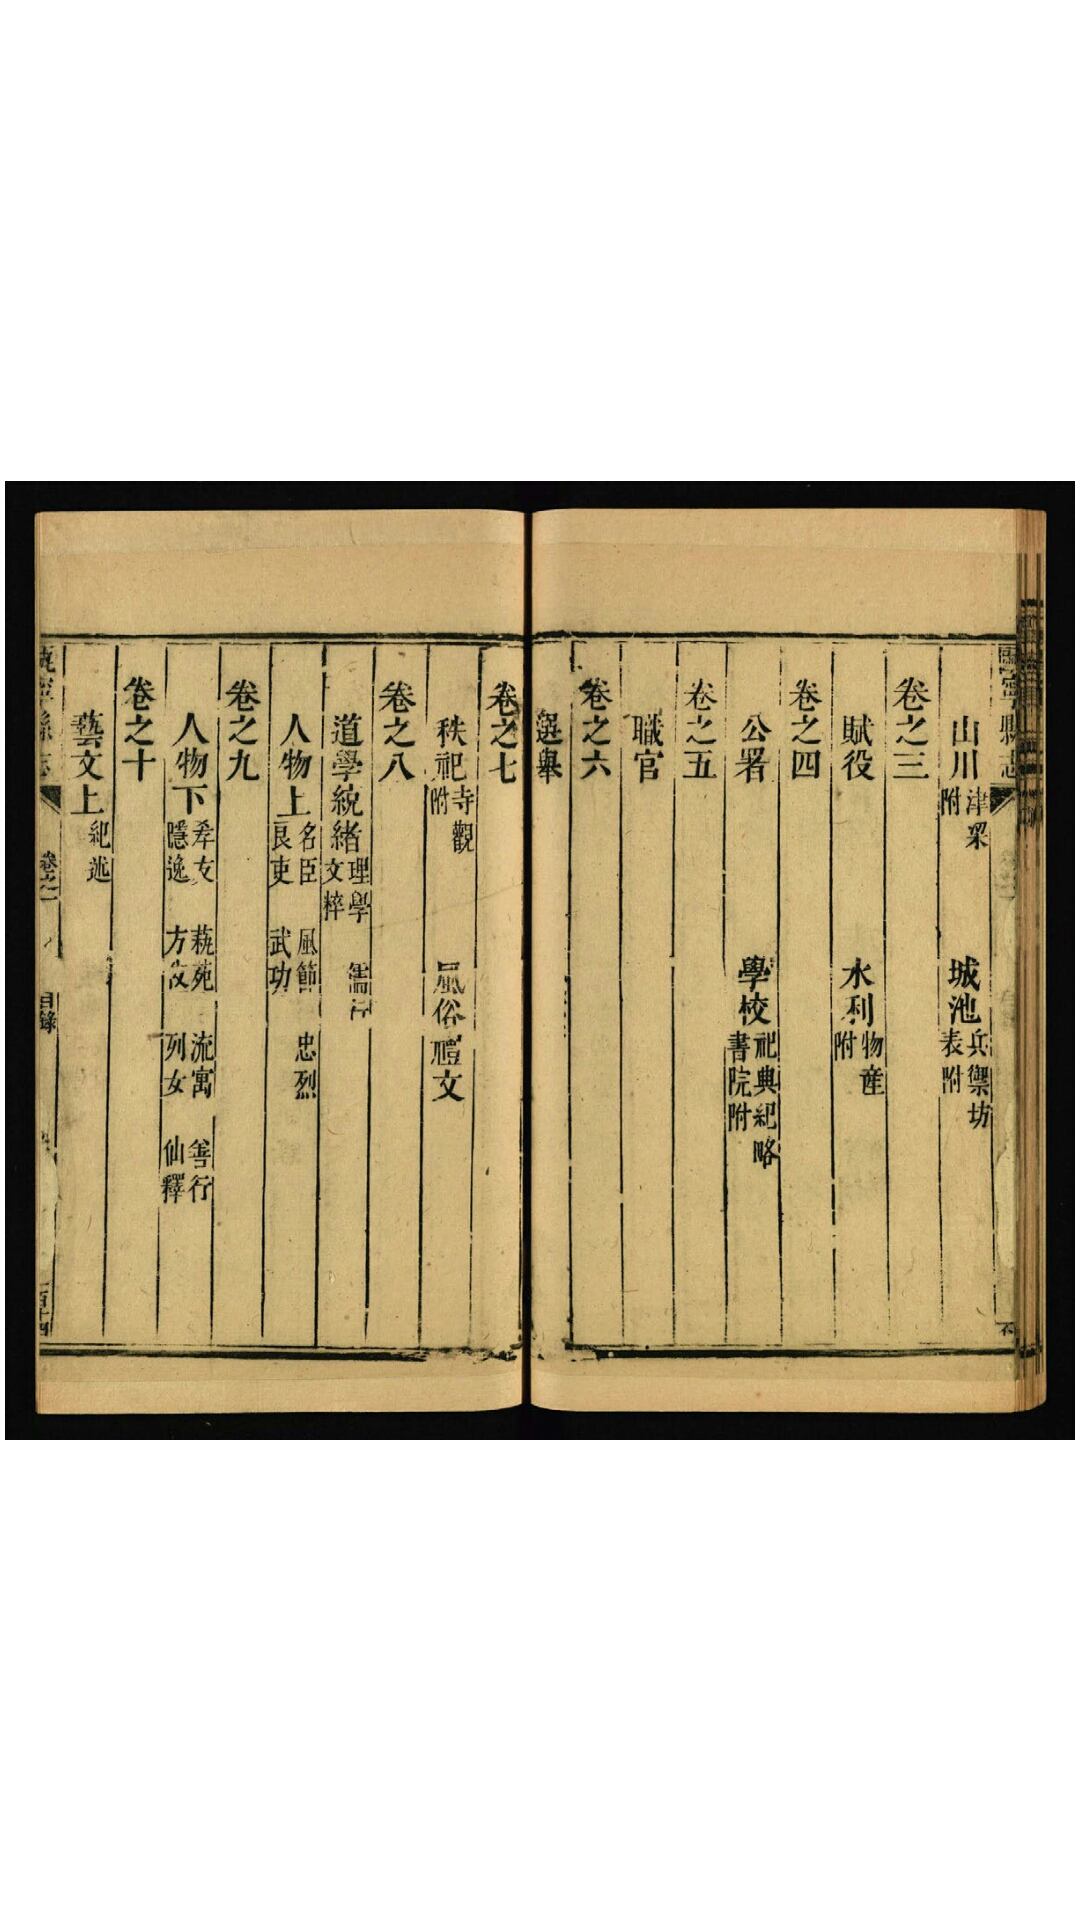 寧縣志
山川津梁附 城池兵禦坊表附
卷之三
賦役 水利物産附
卷之四
公署 學校祀典紀略書院附
卷之五
職官
卷之六
選舉
卷之七
秩祀寺觀附 風俗 禮文
卷之八
道學統緒理學 儒行 文粹
人物上名臣 風節 忠烈 良吏 武功
卷之九
人物下孝友 藝苑 流寓 善行 隱逸 方技 列女 仙釋
卷之十
藝文上紀述
寧縣志 卷之一 目錄